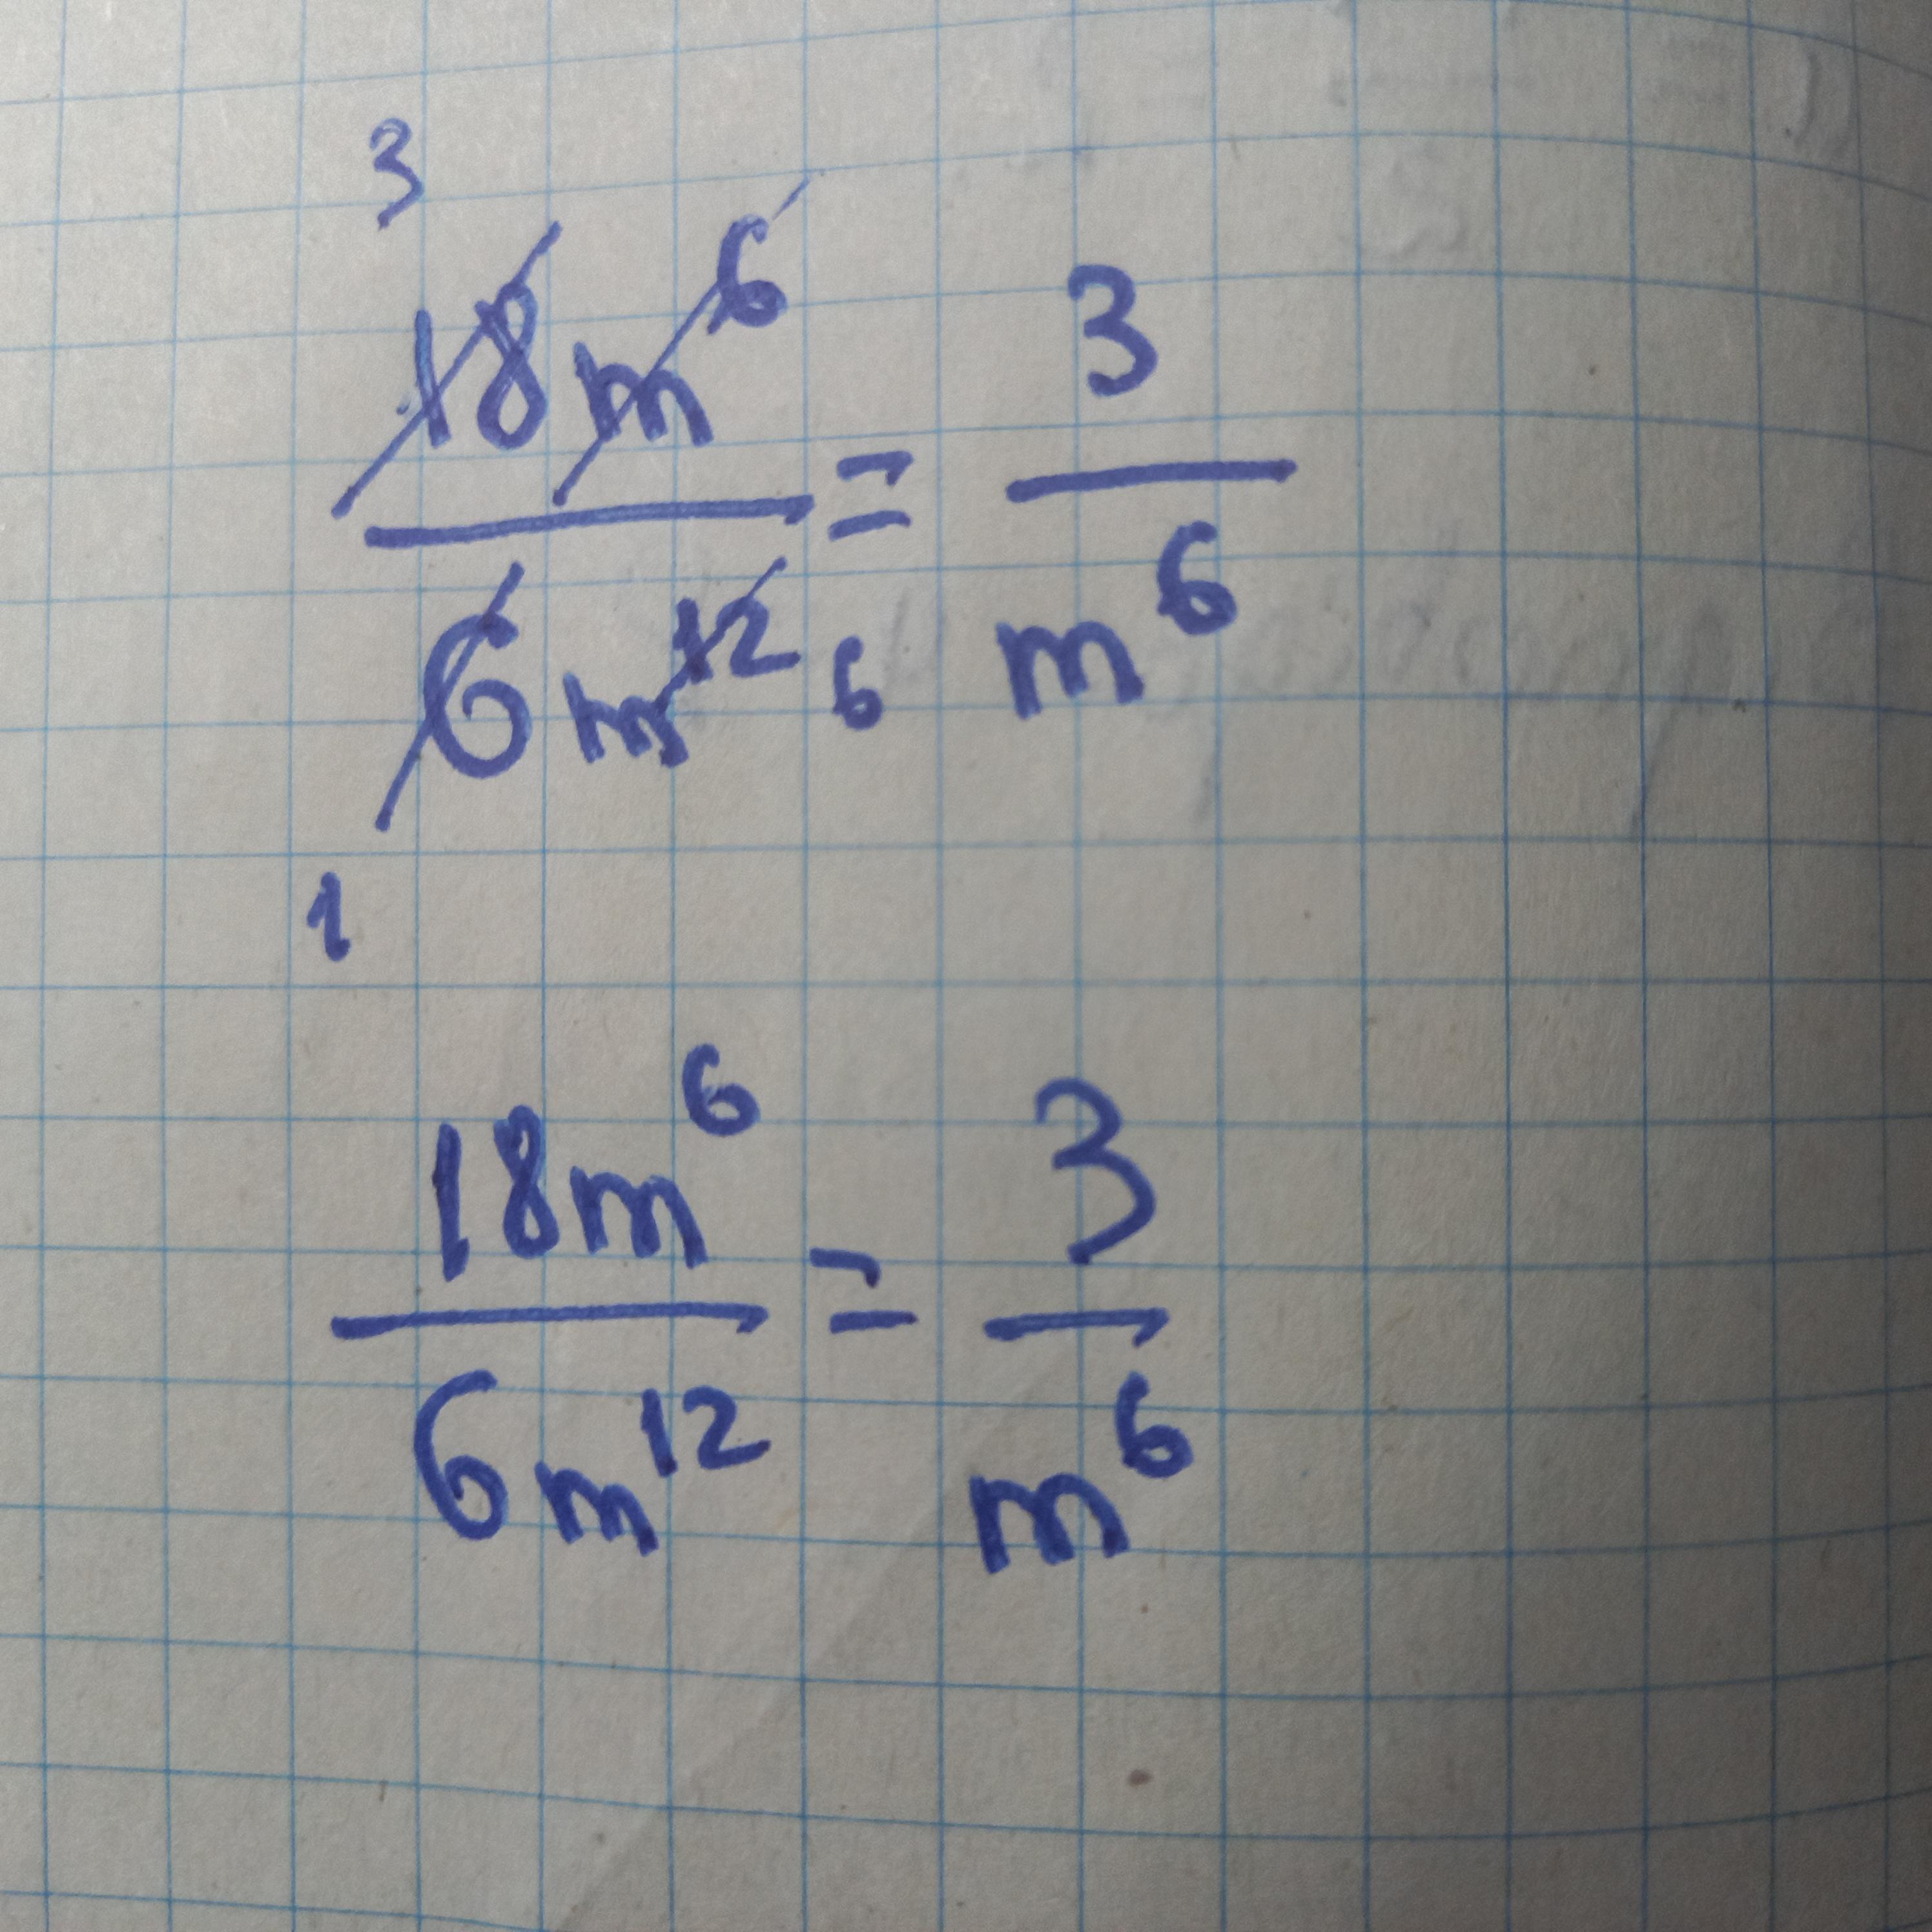 3
18m⁶ / 6m¹² 6 = 3 / m⁶
1
18m⁶ / 6m¹² = 3 / m⁶